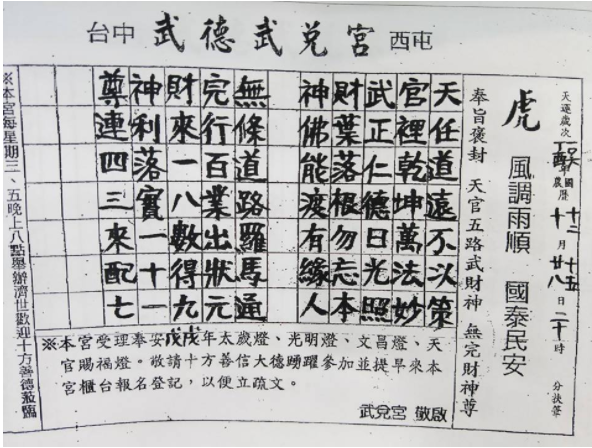 台中 武德武兌宮 西屯
天運歲次 年 國曆 十二月 十五日 二十時 分扶筆
農曆 十月 廿八日
虎 風調雨順 國泰民安
奉旨褒封 天官五路武財神 無完財神尊
天任道遠不以策
官裡乾坤萬法妙
武正仁德日光照
財葉落根勿忘本
神佛能渡有緣人
無條道路羅馬通
完行百業出狀元
財來一八數得九
神利落寶一十一
尊連四三來配七
※本宮受理奉安戊戌年太歲燈、光明燈、文昌燈、天
官賜福燈。敬請十方善信大德踴躍參加並提早來本
宮櫃台報名登記，以便立疏文。
武兌宮 敬啟
※本宮每星期三、五晚上八點舉辦濟世歡迎十方善德蒞臨